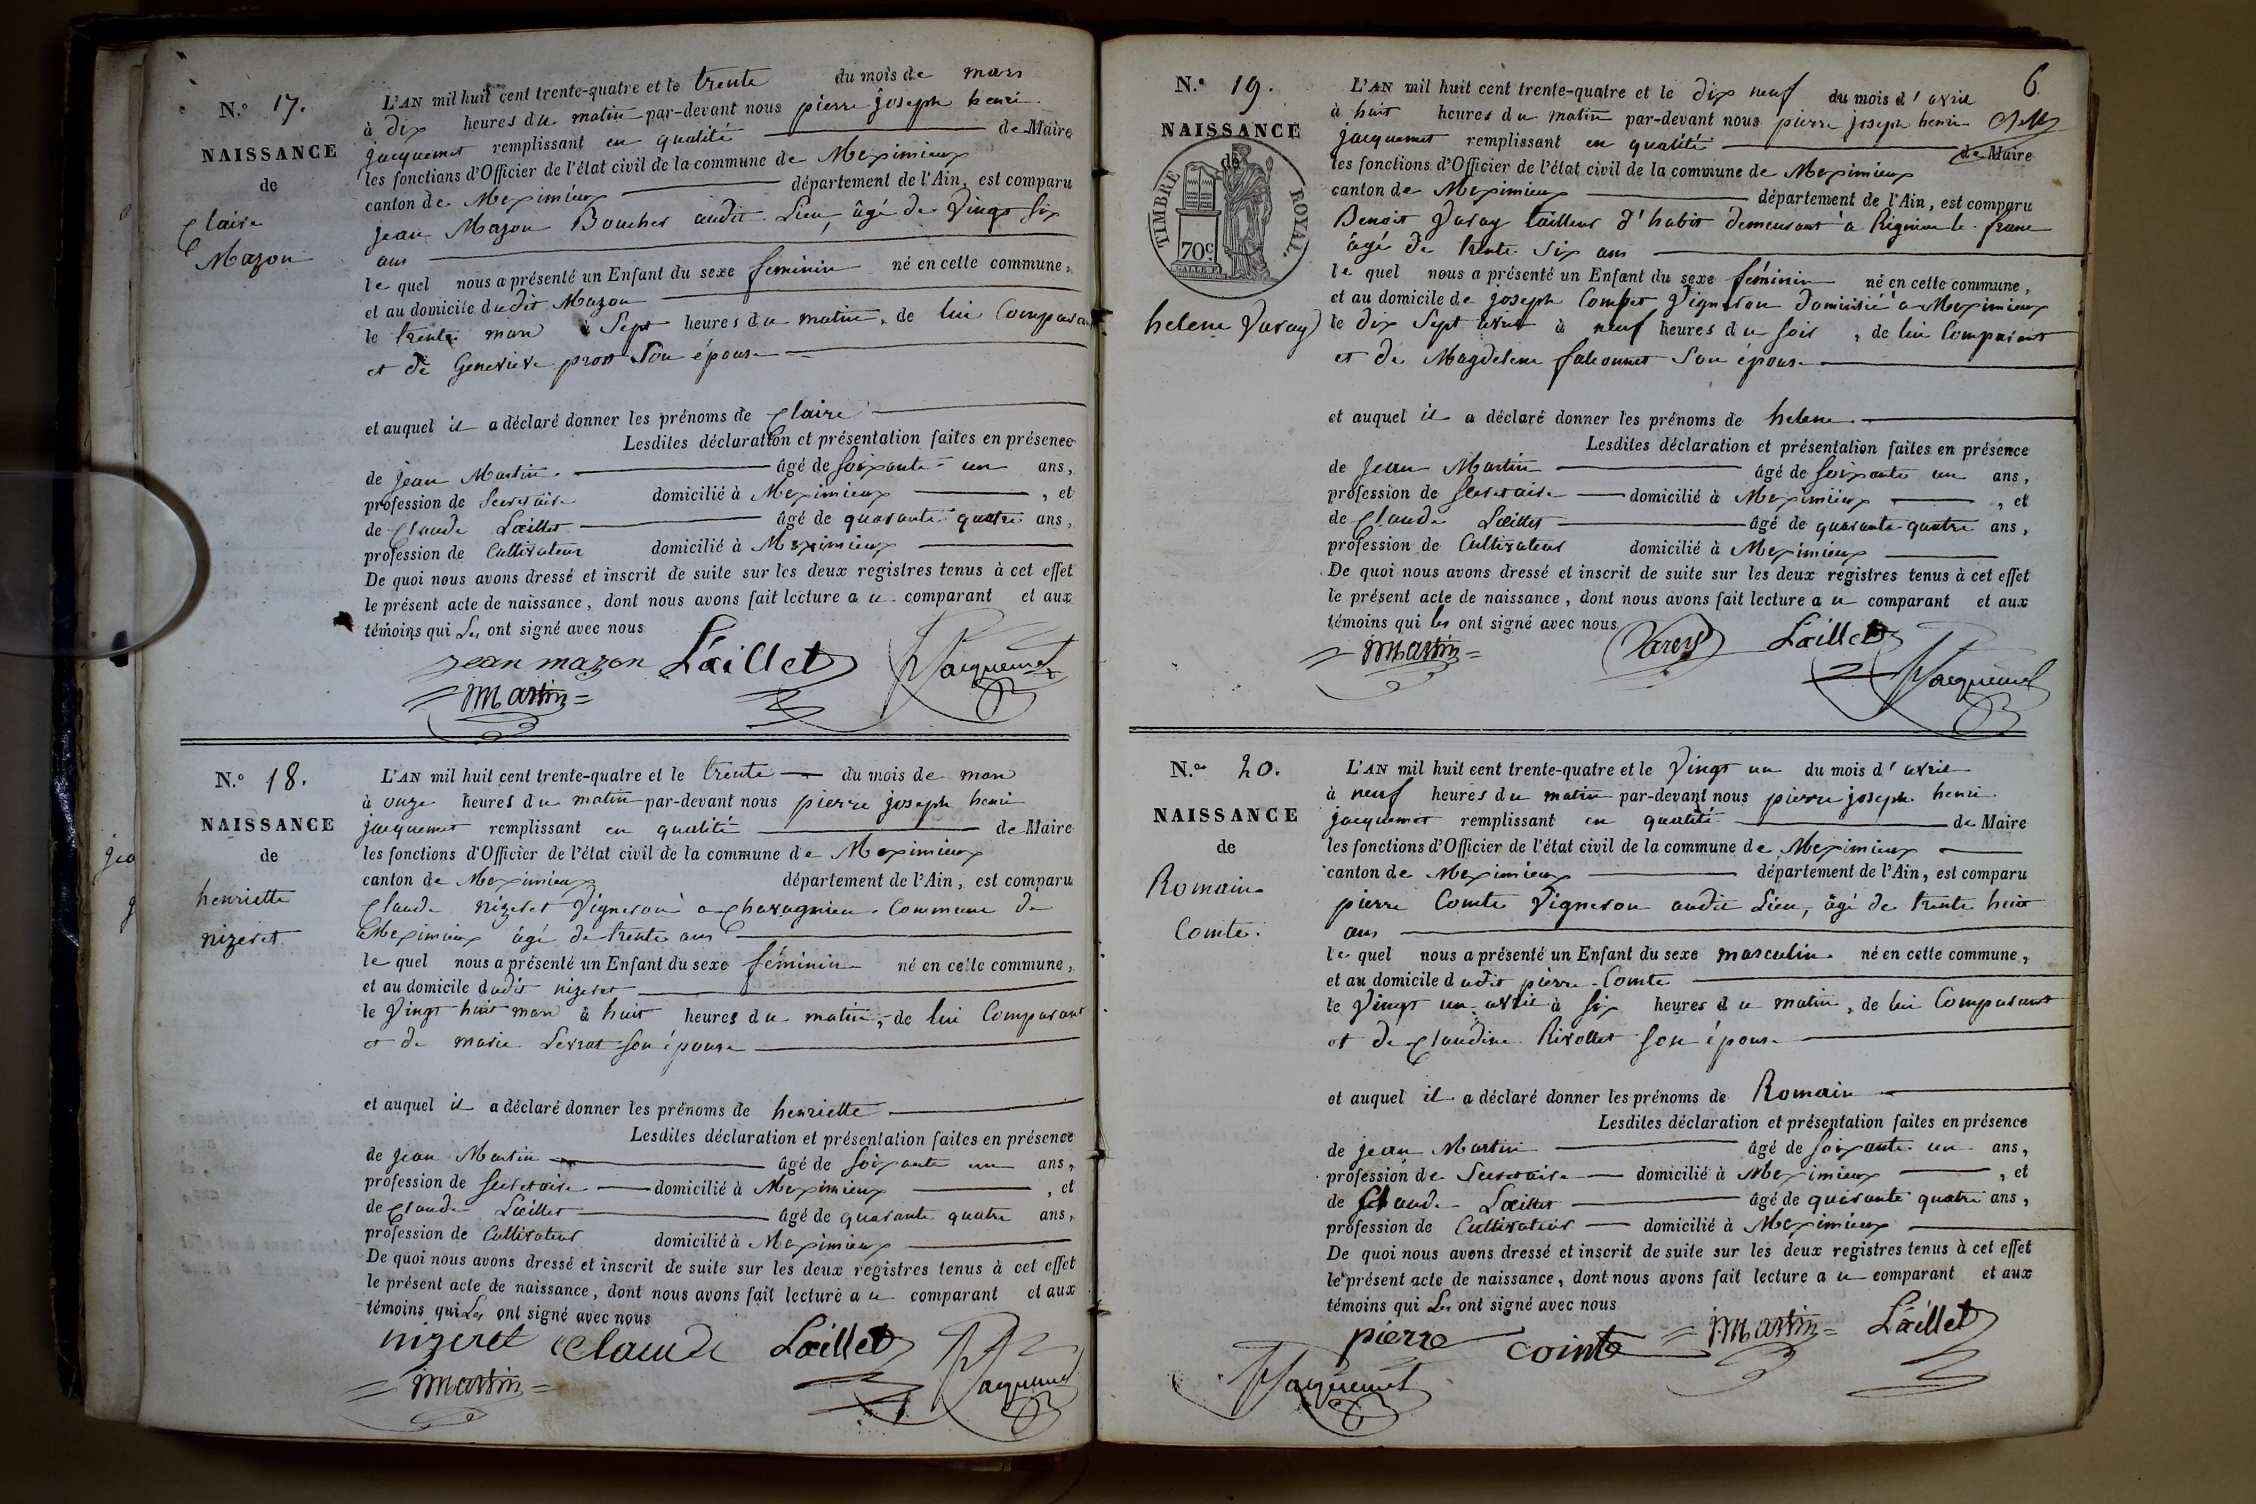 N.° 17.
NAISSANCE
de
Claire
Mazon
L'AN mil huit cent trente-quatre et le trente du mois de mars
à dix heures du matin par-devant nous pierre joseph henri
jacquemet remplissant en qualité de Maire
les fonctions d'Officier de l'état civil de la commune de Meximieux
canton de Meximieux département de l'Ain, est comparu
jean Mazon Boucher audit Lieu, âgé de Vingt six
ans
le quel nous a présenté un Enfant du sexe féminin né en cette commune,
et au domicile dudit Mazon
le trente mars à Sept heures du matin, de lui Comparant
et de Genevieve prost Son épouse
et auquel il a déclaré donner les prénoms de Claire
Lesdites déclaration et présentation faites en présence
de jean Martin âgé de soixante un ans,
profession de Secretaire domicilié à Meximieux, et
de Claude Läillet âgé de quarante quatre ans,
profession de Cultivateur domicilié à Meximieux
De quoi nous avons dressé et inscrit de suite sur les deux registres tenus à cet effet
le présent acte de naissance, dont nous avons fait lecture au comparant et aux
témoins qui Les ont signé avec nous
jean mazon Läillet Jacquemet
JMartin
N.° 18.
NAISSANCE
de
henriette
nizeret
L'AN mil huit cent trente-quatre et le trente du mois de mars
à onze heures du matin par-devant nous pierre joseph henri
jacquemet remplissant en qualité de Maire
les fonctions d'Officier de l'état civil de la commune de Meximieux
canton de Meximieux département de l'Ain, est comparu
Claude nizeret Vigneron à Charagnieu Commune de
Meximieux âgé de trente ans
le quel nous a présenté un Enfant du sexe féminin né en cette commune,
et au domicile dudit nizeret
le Vingt huit mars à huit heures du matin, de lui Comparant
et de marie Levrat son épouse
et auquel il a déclaré donner les prénoms de henriette
Lesdites déclaration et présentation faites en présence
de jean Martin âgé de soixante un ans,
profession de secretaire domicilié à Meximieux, et
de Claude Läillet âgé de quarante quatre ans,
profession de Cultivateur domicilié à Meximieux
De quoi nous avons dressé et inscrit de suite sur les deux registres tenus à cet effet
le présent acte de naissance, dont nous avons fait lecture au comparant et aux
témoins qui Les ont signé avec nous
nizeret Claude Läillet Jacquemet
JMartin
6.
N.° 19.
NAISSANCE
de
TIMBRE ROYAL
70c
helene Varay
L'AN mil huit cent trente-quatre et le dix neuf du mois d'avril
à huit heures du matin par-devant nous pierre joseph henri
jacquemet remplissant en qualité de Maire
les fonctions d'Officier de l'état civil de la commune de Meximieux
canton de Meximieux département de l'Ain, est comparu
Benoit Varay tailleur d'habit demeurant à Rignieu le franc
âgé de trente six ans
le quel nous a présenté un Enfant du sexe féminin né en cette commune,
et au domicile de joseph Combet Vigneron domicilié à Meximieux
le dix Sept avril à neuf heures du soir, de lui Comparant
et de Magdelene falconnet Son épouse
et auquel il a déclaré donner les prénoms de helene
Lesdites déclaration et présentation faites en présence
de jean Martin âgé de soixante un ans,
profession de secretaire domicilié à Meximieux, et
de Claude Läillet âgé de quarante quatre ans,
profession de Cultivateur domicilié à Meximieux
De quoi nous avons dressé et inscrit de suite sur les deux registres tenus à cet effet
le présent acte de naissance, dont nous avons fait lecture au comparant et aux
témoins qui les ont signé avec nous
JMartin Läillet Jacquemet
N.° 20.
NAISSANCE
de
Romain
Comte.
L'AN mil huit cent trente-quatre et le Vingt un du mois d'avril
à neuf heures du matin par-devant nous pierre joseph henri
jacquemet remplissant en qualité de Maire
les fonctions d'Officier de l'état civil de la commune de Meximieux
canton de Meximieux département de l'Ain, est comparu
pierre Comte Vigneron audit Lieu, âgé de trente huit
ans
le quel nous a présenté un Enfant du sexe masculin né en cette commune,
et au domicile dudit pierre Comte
le Vingt un avril à six heures du matin, de lui Comparant
et de Claudine Rivollet son épouse
et auquel il a déclaré donner les prénoms de Romain
Lesdites déclaration et présentation faites en présence
de jean Martin âgé de soixante un ans,
profession de Secretaire domicilié à Meximieux, et
de Claude Läillet âgé de quarante quatre ans,
profession de Cultivateur domicilié à Meximieux
De quoi nous avons dressé et inscrit de suite sur les deux registres tenus à cet effet
le présent acte de naissance, dont nous avons fait lecture au comparant et aux
témoins qui Les ont signé avec nous
pierre cointe JMartin Läillet
Jacquemet